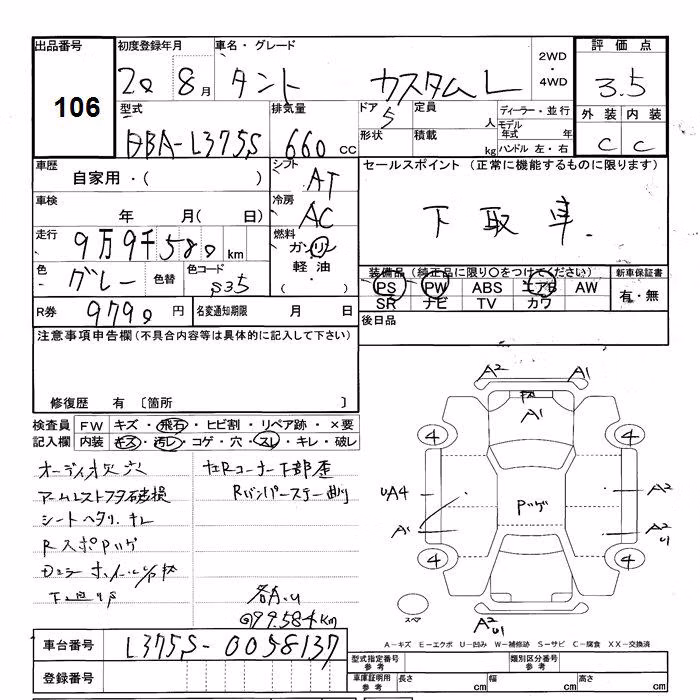 出品番号 初度登録年月 車名・グレード 2WD・4WD 評価点
106
20 8月 タント カスタム L 3.5
型式 排気量 ドア 定員 ディーラー・並行 外装 内装
DBA-L375S 660cc 5 人 モデル年式 年 C C
形状 積載 kg ハンドル 左・右
車歴 シフト セールスポイント (正常に機能するものに限ります)
自家用・( ) AT
車検 冷房 下取車.
年 月( 日) AC
走行 燃料
9万9千580km ガソリン
色 色替 色コード 軽油 装備品 (純正品に限り○をつけてください) 新車保証書
グレー S35 ・( ) PS PW ABS エアB AW 有・無
R券 9790円 名変通知期限 月 日 SR ナビ TV カワ
注意事項申告欄(不具合内容等は具体的に記入して下さい) 後日品
修復歴 有 〔箇所 〕
検査員 FW キズ・飛石・ヒビ割・リペア跡・×要
記入欄 内装 キズ・汚レ・コゲ・穴・スレ・キレ・破レ
オーディオ欠 穴
アームレストフタ破損 Rバンパーステー曲り
シートヘタリ.キレ
A2 A1
A1
4 4
UA4 Pツゲ A2
A1 A2
U1
4 4
スペア A2
U1
各A.U
@99.584km
車台番号 L375S-0058137
A-キズ E-エクボ U-凹み W-補修跡 S-サビ C-腐食 XX-交換済
登録番号 型式指定番号参考 類別区分番号参考
車庫証明用参考 長さ cm 幅 cm 高さ cm